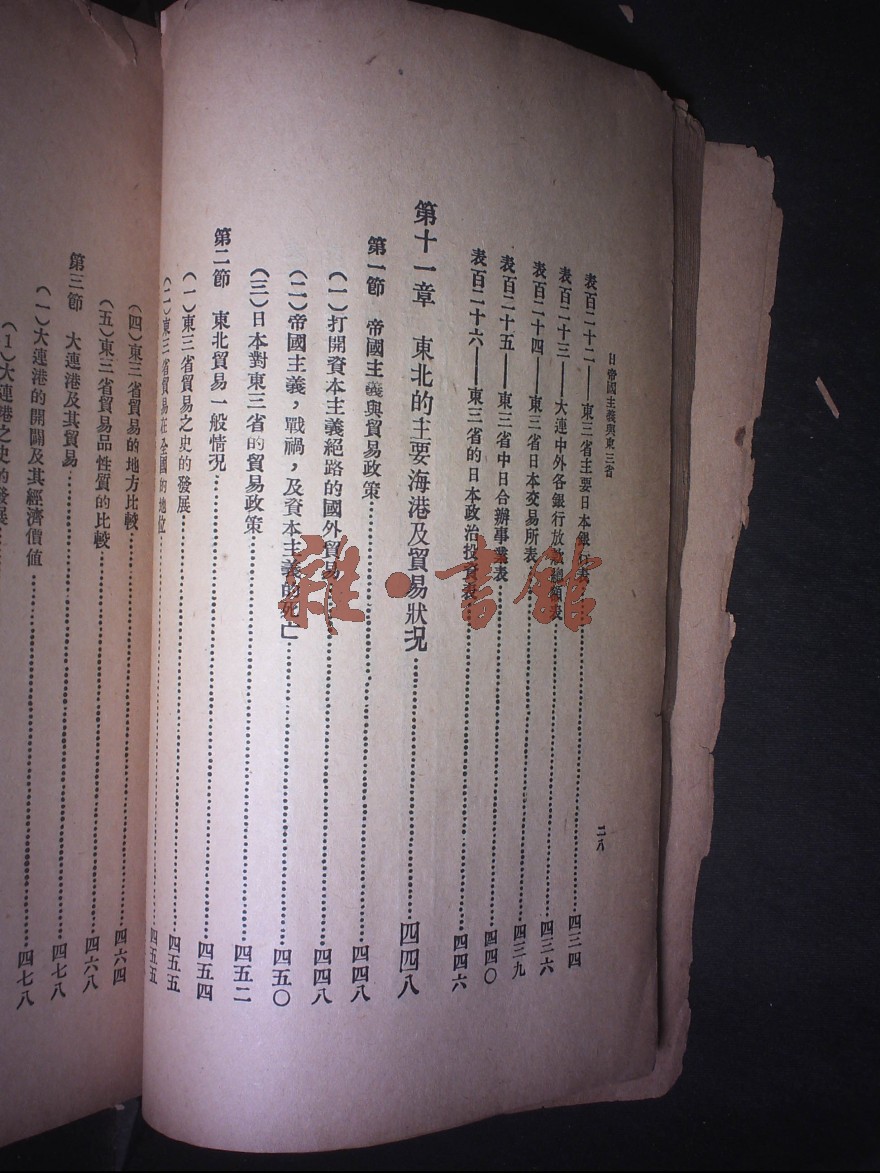 日帝國主義與東三省
二八
表百二十二——東三省主要日本銀行表……四三四
表百二十三——大連中外各銀行放款總額表……四三六
表百二十四——東三省日本交易所表……四三九
表百二十五——東三省中日合辦事業表……四四〇
表百二十六——東三省的日本政治投資表……四四六
第十一章 東北的主要海港及貿易狀況……四四八
第一節 帝國主義與貿易政策……四四八
(一)打開資本主義絕路的國外貿易……四四八
(二)帝國主義,戰禍,及資本主義的死亡……四五〇
(三)日本對東三省的貿易政策……四五二
第二節 東北貿易一般情況……四五四
(一)東三省貿易之史的發展……四五五
(二)東三省貿易在全國的地位……四五五
(四)東三省貿易的地方比較……四六四
(五)東三省貿易品性質的比較……四六八
第三節 大連港及其貿易……四七八
(一)大連港的開闢及其經濟價值……四七八
(1)大連港之史的發展
雜·書館